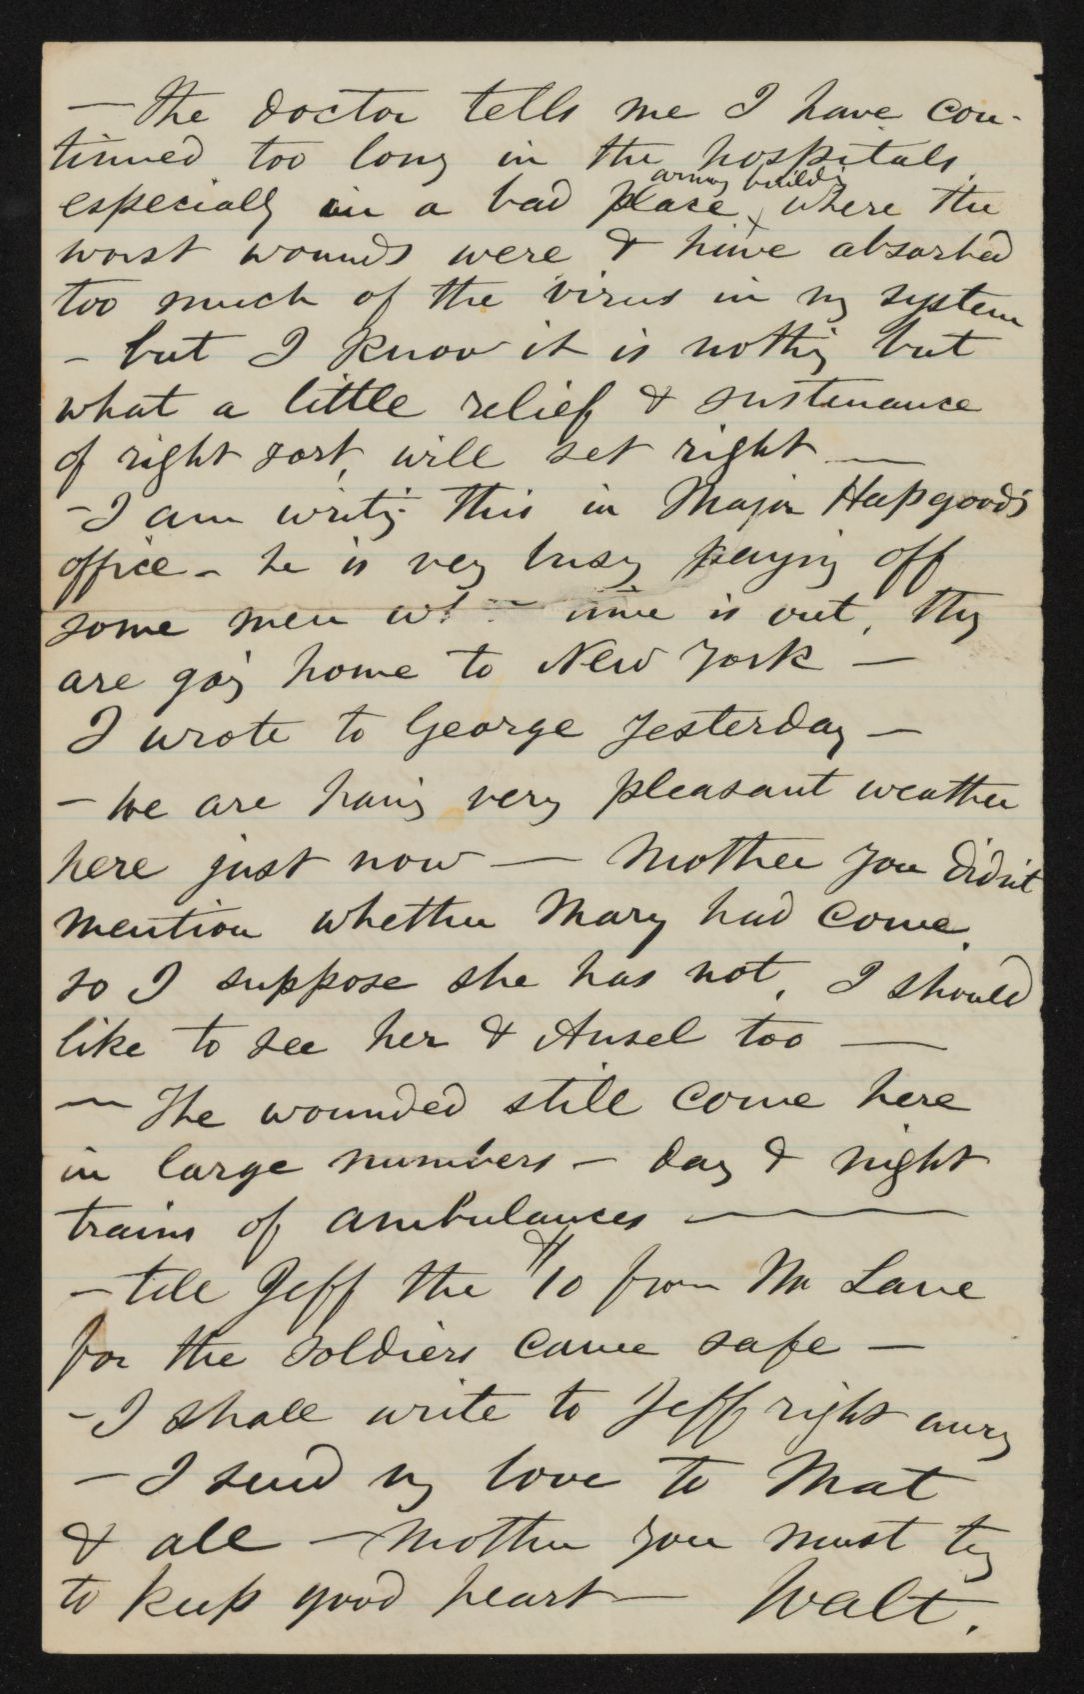 — The doctor tells me I have con-
tinued too long in the hospitals,
army building
especially in a bad place, where the
worst wounds were & have absorbed
too much of the virus in my system
— but I know it is nothing but
what a little relief & sustenance
of right sort, will set right —
— I am writing this in Major Hapgood's
office — he is very busy paying off
some men time is out, they
are going home to New York —
I wrote to George yesterday —
— We are having very pleasant weather
here just now — Mother you didn't
mention whether Mary had come,
so I suppose she has not, I should
like to see her & Ansel too —
— The wounded still come here
in large numbers — day & night
trains of ambulances —
— tell Jeff the $10 from Mr Lane
for the soldiers came safe —
— I shall write to Jeff right away
— I send my love to Mat
& all — Mother you must try
to keep good heart — Walt.